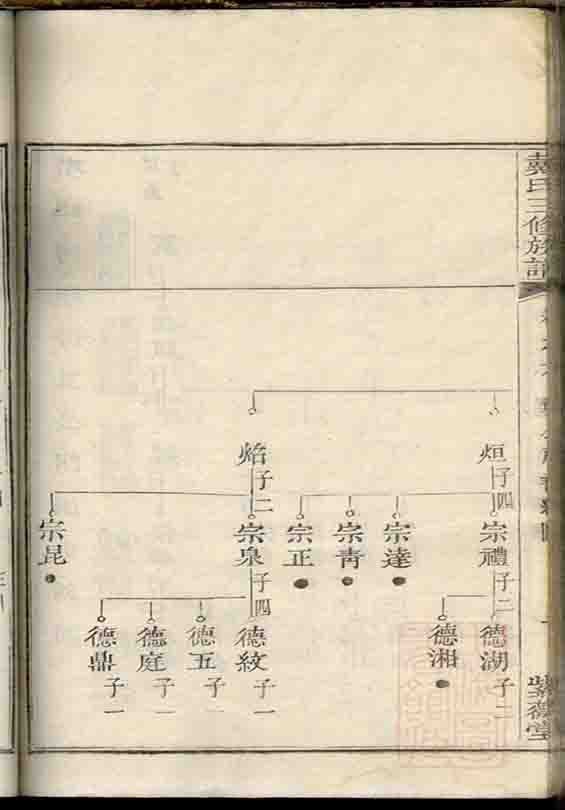 戴氏三修族譜
紫薇堂
烜 子四
焰 子二
宗禮 子二
宗達
宗靑
宗正
宗泉 子四
宗昆
德湖 子二
德湘
德紋 子一
德五 子一
德庭 子一
德鼎 子一